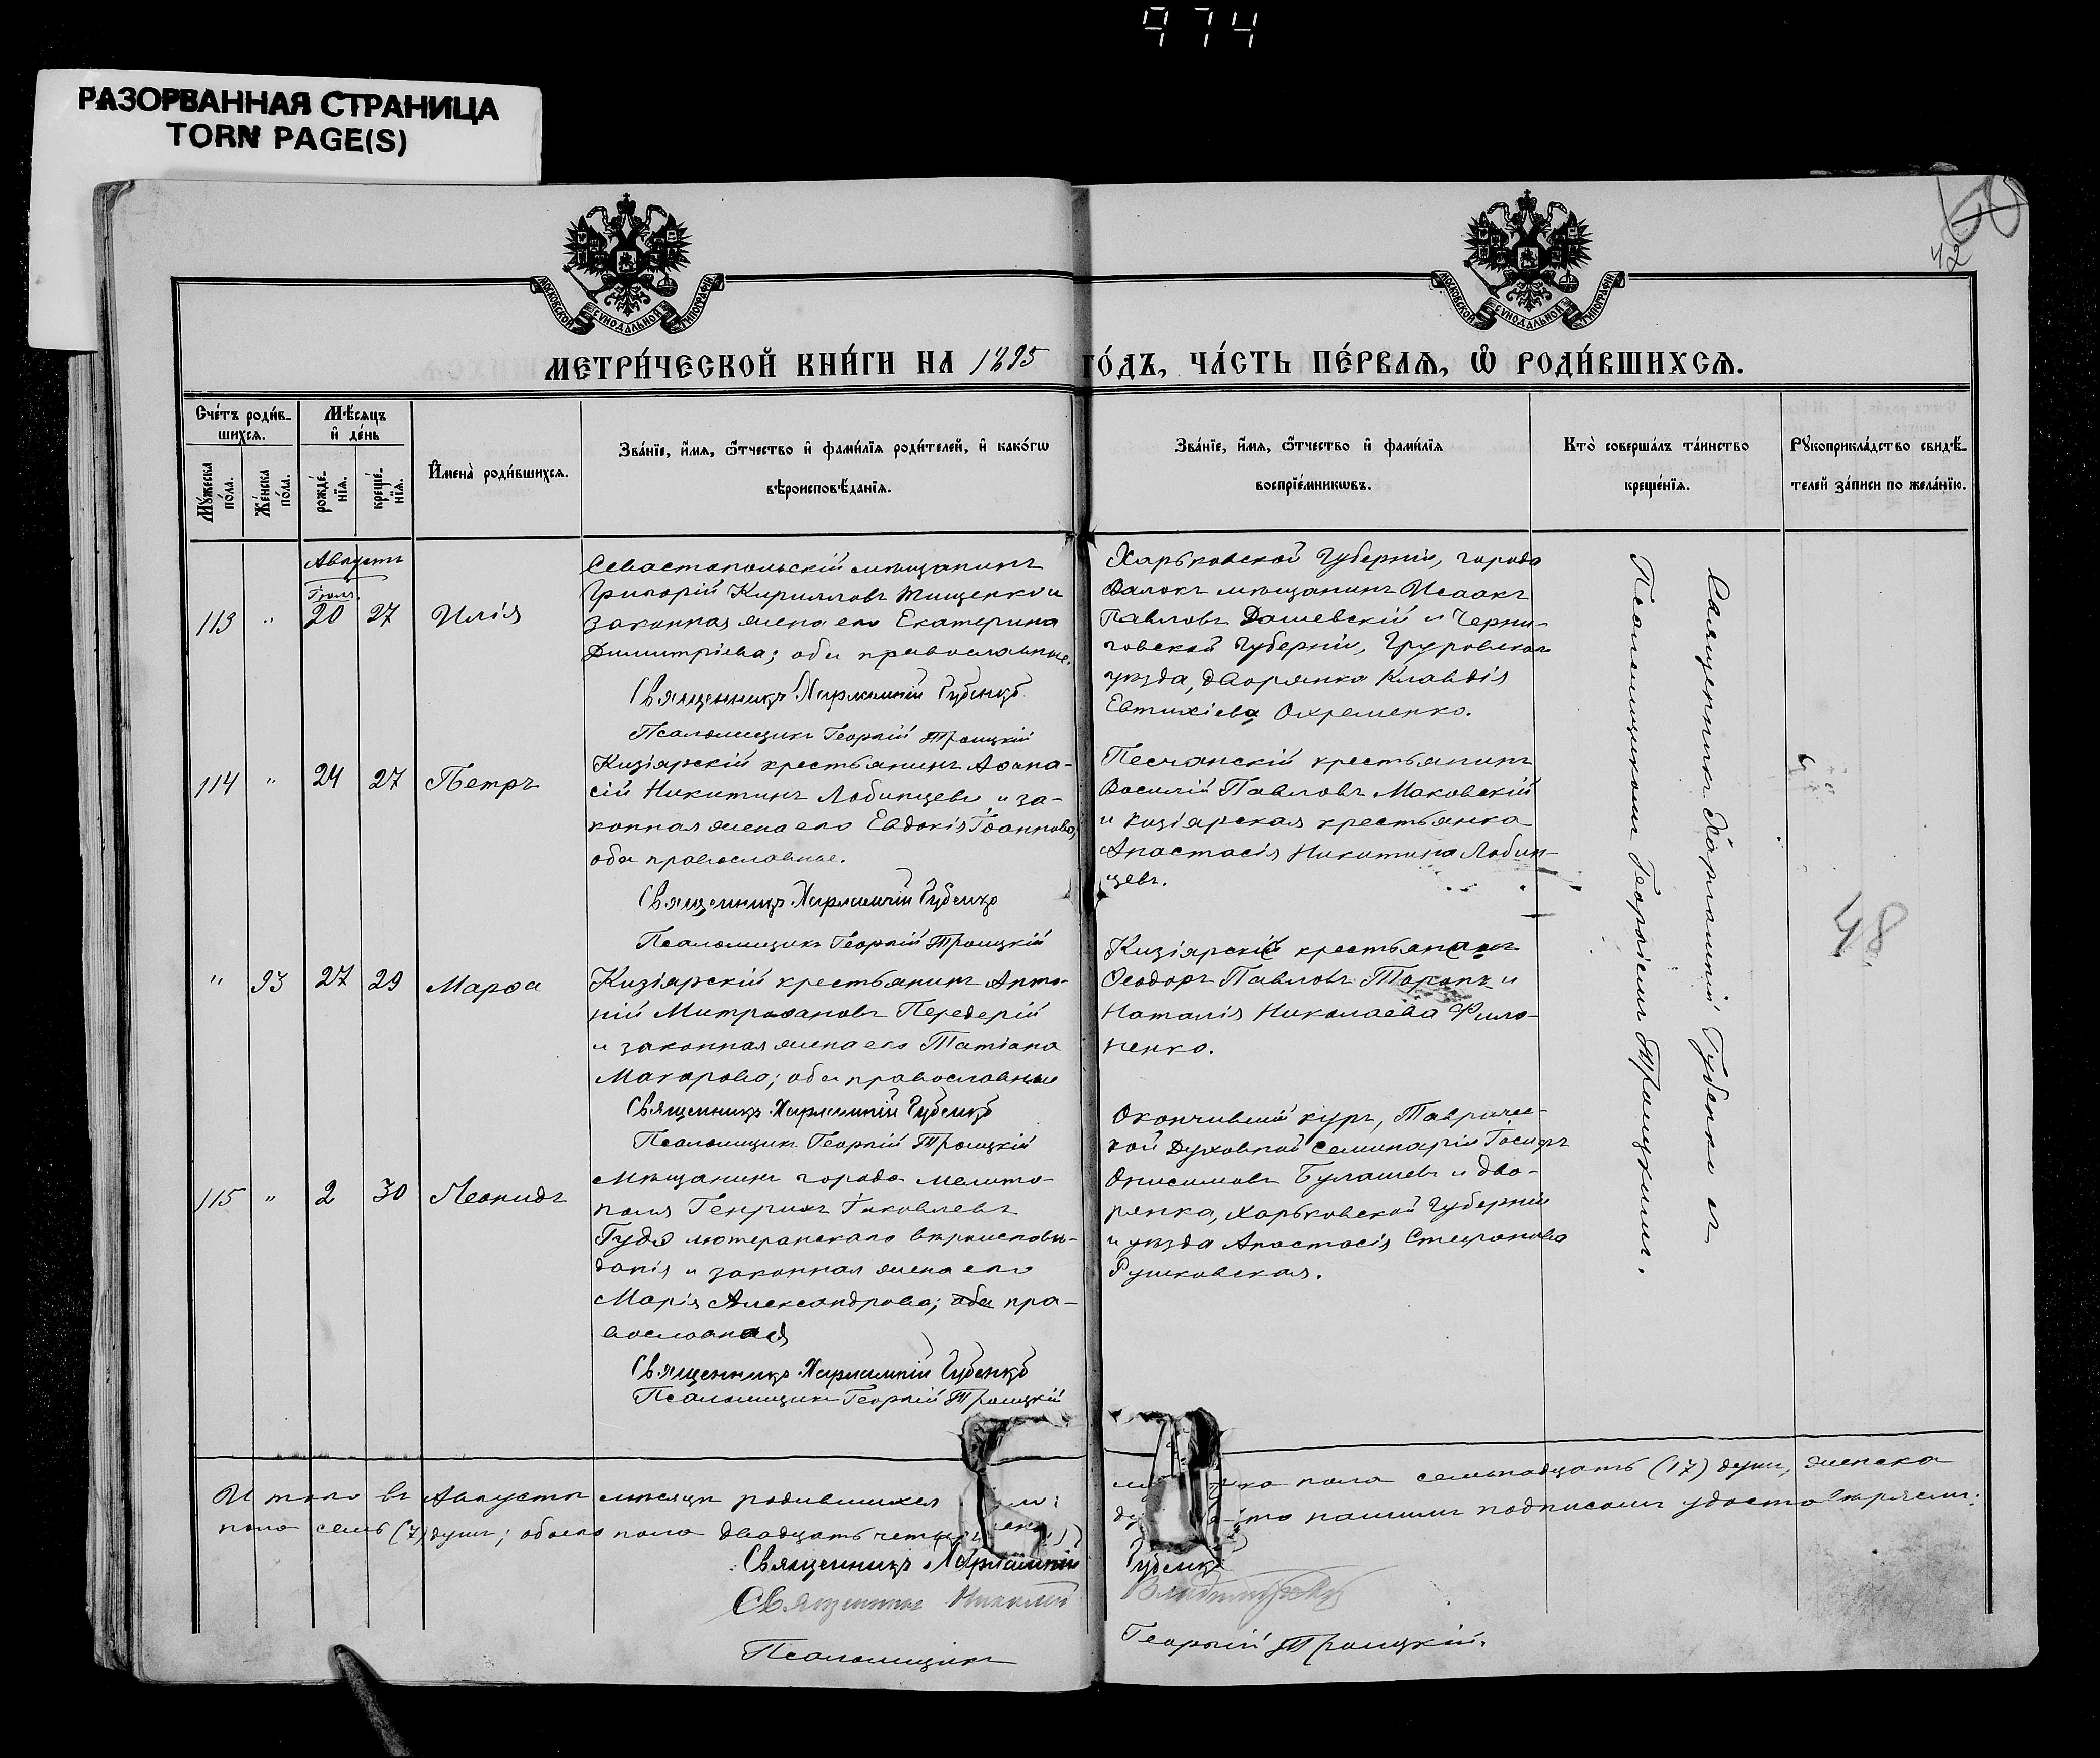 974
РАЗОРВАННАЯ СТРАНИЦА
TORN PAGE(S)
42
МОСКОВСКОЙ СѴНОДАЛЬНОЙ ТИПОГРАФІИ
МОСКОВСКОЙ СѴНОДАЛЬНОЙ ТИПОГРАФІИ
МЕТРИ́ЧЕСКОЙ КНИ́ГИ НА 1895 ГО́ДЪ, ЧА́СТЬ ПЕ́РВАѦ, Ѽ РОДИ́ВШИХСѦ.
Сче́тъ роди́в-
шихсѧ.
Мѣ́сѧцъ
и҆ де́нь
Мꙋ́жеска
по́ла.
Же́нска
по́ла.
рожде́-
нїѧ.
креще́-
нїѧ.
И҆мена̀ роди́вшихсѧ.
Зва́нїе, и҆́мѧ, ѻ҆́тчество и҆ фами́лїѧ роди́телей, и҆ како́гѡ
вѣроисповѣ́данїѧ.
Зва́нїе, и҆́мѧ, ѻ҆́тчество и҆ фами́лїѧ
воспрїе́мникѡвъ.
Кто̀ соверша́лъ та́инство
креще́нїѧ.
Рꙋкоприкла́дство свидѣ́-
телей за́писи по жела́нїю.
Августъ
Іюля
113 " 20 27 Илія
Севастопольскій мѣщанинъ
Григорій Кирилловъ Тищенко и
законная жена его Екатерина
Димитріева; оба православные.
Священникъ Харлампій Губенко
Псаломщикъ Георгій Троицкій
Харьковской Губерніи, города
Валокъ мѣщанинъ Исаакъ
Павловъ Дашевскій и Черни-
говской Губерніи,
уѣзда, дворянка Клавдія
Евтихіева Охременко.
114 " 24 27 Петръ
Кизіярскій крестьянинъ Аѳана-
сій Никитинъ Лобинцевъ и за-
конная жена его Евдокія Іоаннова,
оба православные.
Священникъ Харлампій Губенко
Псаломщикъ Георгій Троицкій
Песчанскій крестьянинъ
Василій Павловъ Маковскій
и Кизіярская крестьянка
Анастасія Никитина Лобин-
цевъ.
" 93 27 29 Марѳа
Кизіярскій крестьянинъ Анто-
ній Митрофановъ Передерій
и законная жена его Татіана
Макарова; оба православные
Священникъ Харлампій Губенко
Псаломщикъ Георгій Троицкій
Кизіярскій крестьянинъ
Ѳеодоръ Павловъ Таранъ и
Наталія Николаева Фило-
ненко.
115 " 2 30 Леонидъ
Мѣщанинъ города Мелито-
поля Генрихъ Іаковлевъ
Гудз лютеранскаго вѣроисповѣ-
данія и законная жена его
Марія Александрова; оба пра-
вославная
Священникъ Харлампій Губенко
Псаломщикъ Георгій Троицкій
Окончившій курсъ, Тавричес-
кой Духовной Семинаріи Іосифъ
Онисимовъ Булашевъ и дво-
рянка, Харьковской Губерніи
и уѣзда Анастасія Стефанова
Рушковская.
Священникъ Харлампій Губенко съ
Псаломщикомъ Георгіемъ Троицкимъ.
48
Итого въ Августѣ мѣсяцѣ родившихся пола семьнадцать (17) душъ, женска
пола семь (7) душъ; обоего пола двадцать четыре то нашими подписами удостовѣряемъ:
Священникъ Харлампій Губенко
Священникъ Николай
Псаломщикъ Георгій Троицкій.